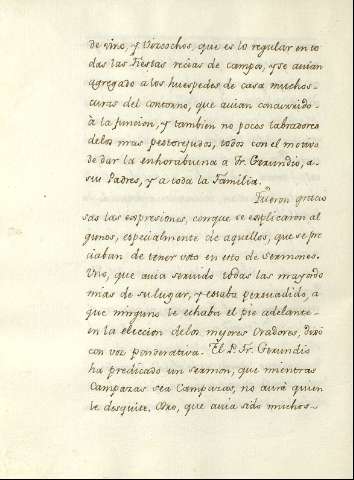 de vino, y Vizcochos, que es lo regular en to
das las Fiestas recias de campos, y se avian
agregado a los huespedes de casa muchos-
curas del contorno, que avian concurrido-
à la funcion, y tambien no pocos labradores
delos mas pestorejudos, todos con el motivo
de dar la enhorabuena a Fr. Gerundio, a-
sus Padres, y a toda la Familia.
Fueron gracio
sas las expresiones, conque se esplicaron al
gunos, especialmente de aquellos, que se pre
ciaban de tener voto en esto de Sermones.
Uno, que avia servido todas las mayordo
mias de su lugar, y estaba persuadido, a
que ninguno le echaba el pie adelante-
en la eleccion delos mejores Oradores, dixo
con voz ponderativa. El P. Fr. Gerundio
ha predicado un sermon, que mientras
Campazas sea Campazas, no aurà quien
le desquite. Otro, que avia sido muchos-